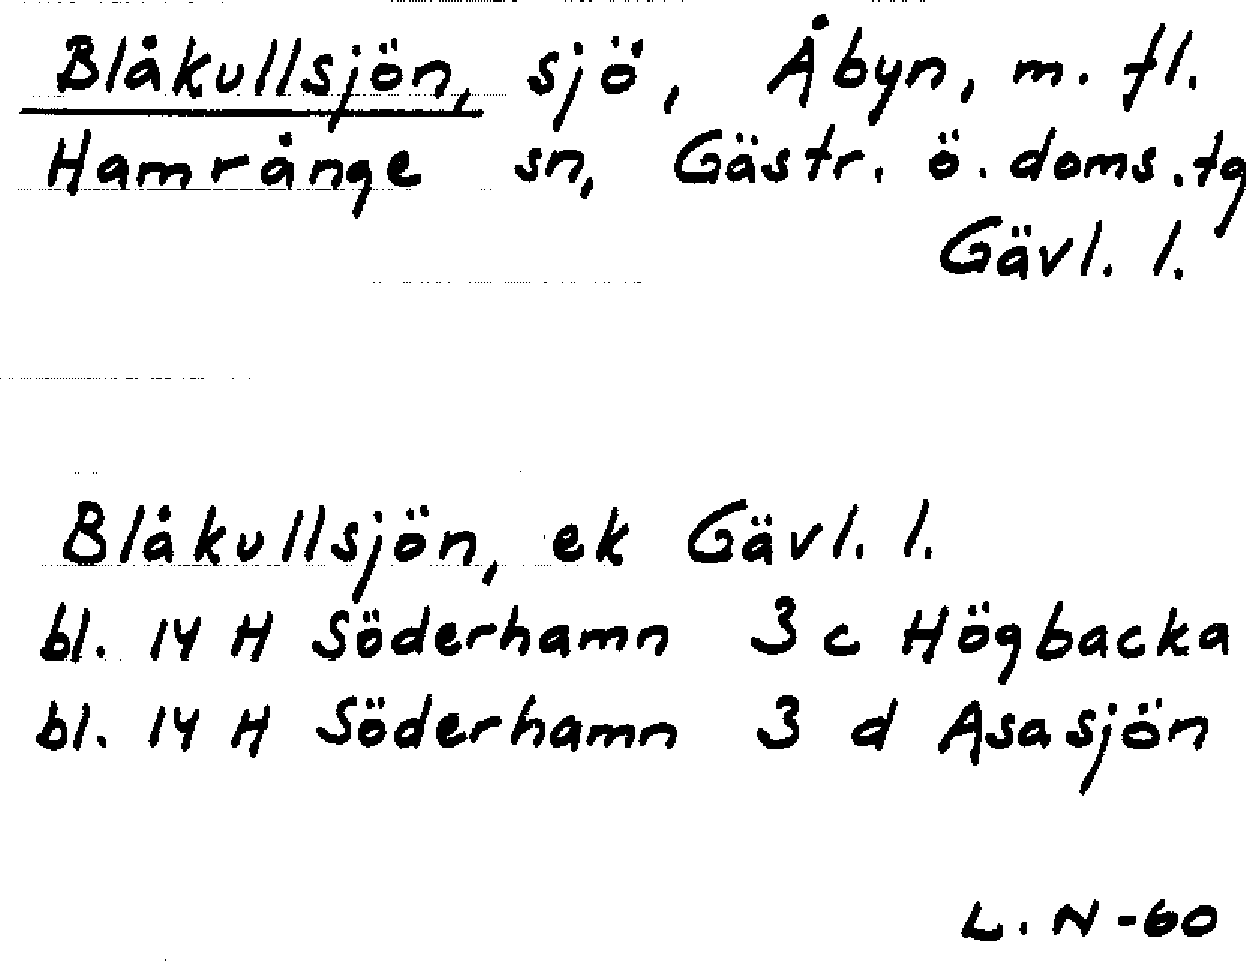 Blåkullsjön, sjö, Åbyn, m. fl.
Hamrånge sn, Gästr. ö. doms.tg
Gävl. l.
Blåkullsjön, ek Gävl. l.
bl. 14 H Söderhamn 3 c Högbacka
bl. 14 H Söderhamn 3 d Asasjön
L. N -60